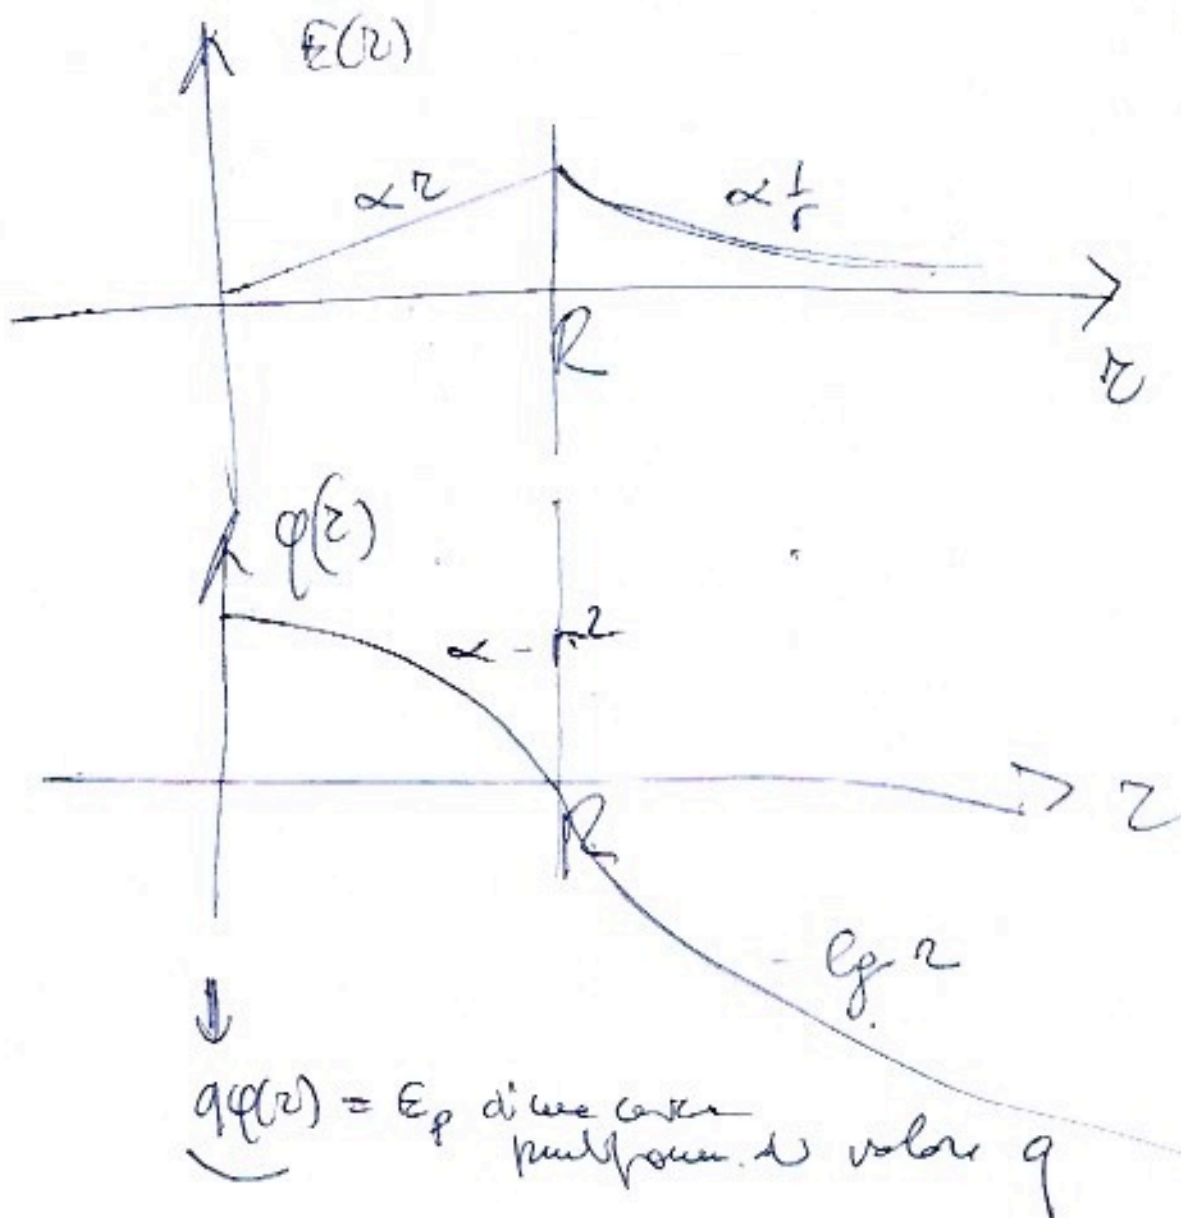 E(r)
∝ r
∝ 1/r
R
r
φ(r)
∝ - r²
r
R
- lg r
qφ(r) = Ep di una carica
puntiforme di valore q